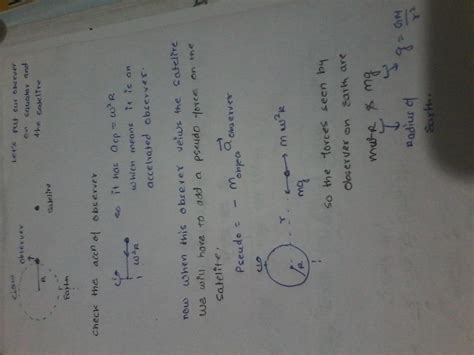 Let's put our observer
on equator and
the satellite
observer
R
r
Earth
satellite
check the accn of observer
ω²R
so it has acp = ω²R
which means it is an
accelrated observer.
now when this observer veiws the satellite
we will have to add a pseudo force on the
satellite.
Pseudo = - m object a observer
R
r
mg
mω²R
so the forces seen by
observer on Earth are
mω²R & mg
Radius of
Earth.
g = GM/r²